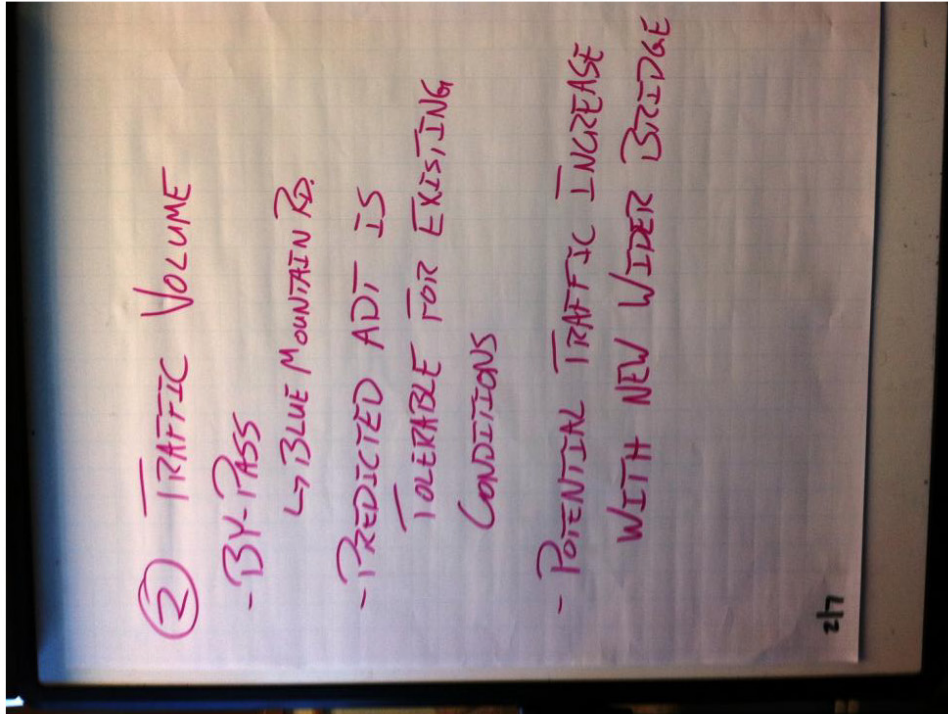 ② TRAFFIC VOLUME
- BY-PASS
↳ BLUE MOUNTAIN RD.
- PREDICTED ADT IS
TOLERABLE FOR EXISTING
CONDITIONS
- POTENTIAL TRAFFIC INCREASE
WITH NEW WIDER BRIDGE
2/7